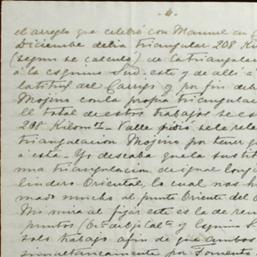 4.
el arreglo que celebré con Manuel en
Diciembre debia triangular 208 Kil
(segun se calculo) de la triangulac
á la esquina Sud-este y de allí á
latitud del Carrizo y por fin
Mojino con la propia triangulac
El total de estos trabajos se es
208 Kilom. Valle pidió se le rele
triangulacion Mojino por tener que
á esta. Yo deseaba que la sustit
una triangulacion de igual long
lindero Oriental, lo cual nos h
mado mucho al punto Oriente del
Mi mira al fijar este es la de reu
puntos y Esquina S
solo trabajo afin de que ambos
simultaneamente por Fomento